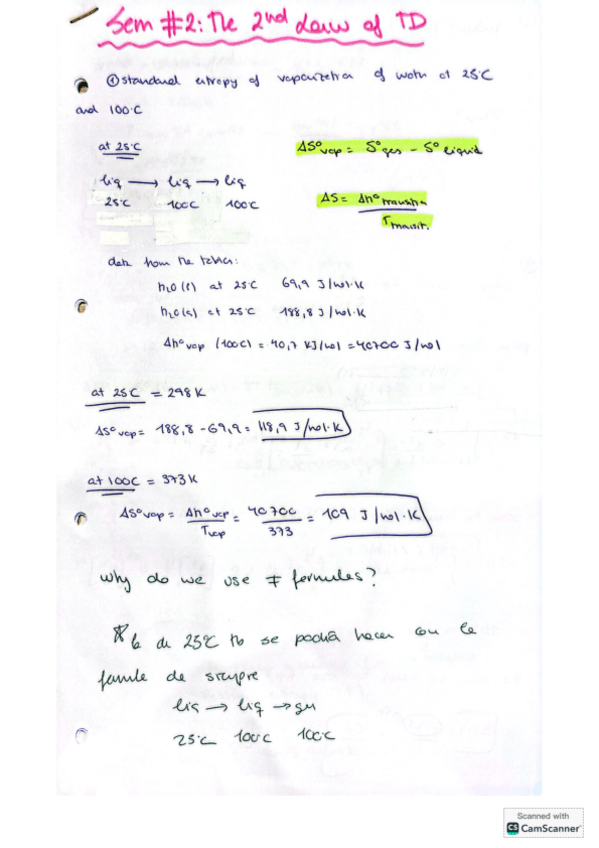 Sem #2: The 2nd Law of TD
① standard entropy of vaporization of water at 25ºC
and 100ºC
at 25ºC
ΔSºvap = Sºgas - Sºliquid
liq → liq → liq
25ºC 100C 100ºC
ΔS = Δhºtransition
Ttransit.
data from the tables:
h2O (l) at 25ºC 69,9 J/mol·K
h2O (g) at 25ºC 188,8 J/mol·K
Δhºvap (100C) = 40,7 KJ/mol = 40700 J/mol
at 25C = 298K
ΔSºvap = 188,8 - 69,9 = 118,9 J/mol·K
at 100C = 373K
ΔSºvap = Δhºvap/Tvap = 40700/373 = 109 J/mol·K
why do we use ≠ formules?
la de 25ºC no se podía hacer con la
de siempre
liq → liq → gas
25ºC 100ºC 100ºC
Scanned with
CS CamScanner